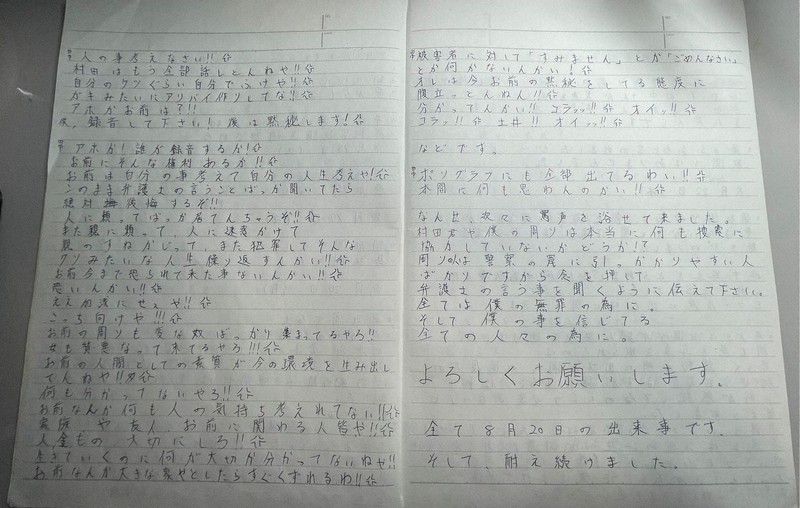 人の事考えなさい!!
村田はもう全部話しとんねや!!
自分のケツぐらい自分でふけや!!
ガキみたいにアリバイ作りしてな!!
アホかお前は?!!
僕、録音して下さい! 後は黙秘します!
アホか! 誰が録音するか!
お前にそんな権利あるか!!
お前は自分の事考えて自分の人生考えや!
このまま弁護士の言うことばっか聞いてたら
絶対 後悔するぞ!!
人に頼ってばっか居てんちゃうぞ!!
また親に頼って、人に迷惑かけて
親のすねかじって、また犯罪してそんな
クソみたいな人生繰り返すんかい!!
お前今まで怒られて来た事ないんかい!!
悪いんかい!!
ええ加減にせぇや!!
こっち向けや!!!
お前の周りも変な奴ばっかり集まってるやろ!!
女も質悪なって来てるやろ!!!
お前の人間としての素質が今の環境を生み出し
てんねや!!
何も分かってないやろ!!
お前なんか何も人の気持ち考えれてない!!
家族や友人、お前に関わる人皆や!!
人金もの、大切にしろ!!
生きていくのに何が大切か分かってないねや!!
お前なんか大きな壁やとしたらすぐくずれるわ!!
被害者に対して「すみません」とか「ごめんなさい」
とか何かないんかい!
オレは今お前の黙秘をしてる態度に
腹立っとんねん!!
分かってんかい!! コラッ!! オイッ!!
コラ!! 土井!! オイッ!!
などです。
ポリグラフにも全部出てるわい!!
本間に何も思わんのかい!!
なんせ、次々に罵声を浴せて来ました。
村田君や僕の周りは本当に何も捜査に
協力していないかどうか!?
周りの人は警察の罠に引っかかりやすい人
ばかりですから念を押して
弁護士の言う事を聞くように伝えて下さい。
全ては僕の無罪の為に。
そして僕の事を信じてる
全ての人々の為に。
よろしくお願いします。
全て8月20日の出来事です。
そして、耐え続けました。